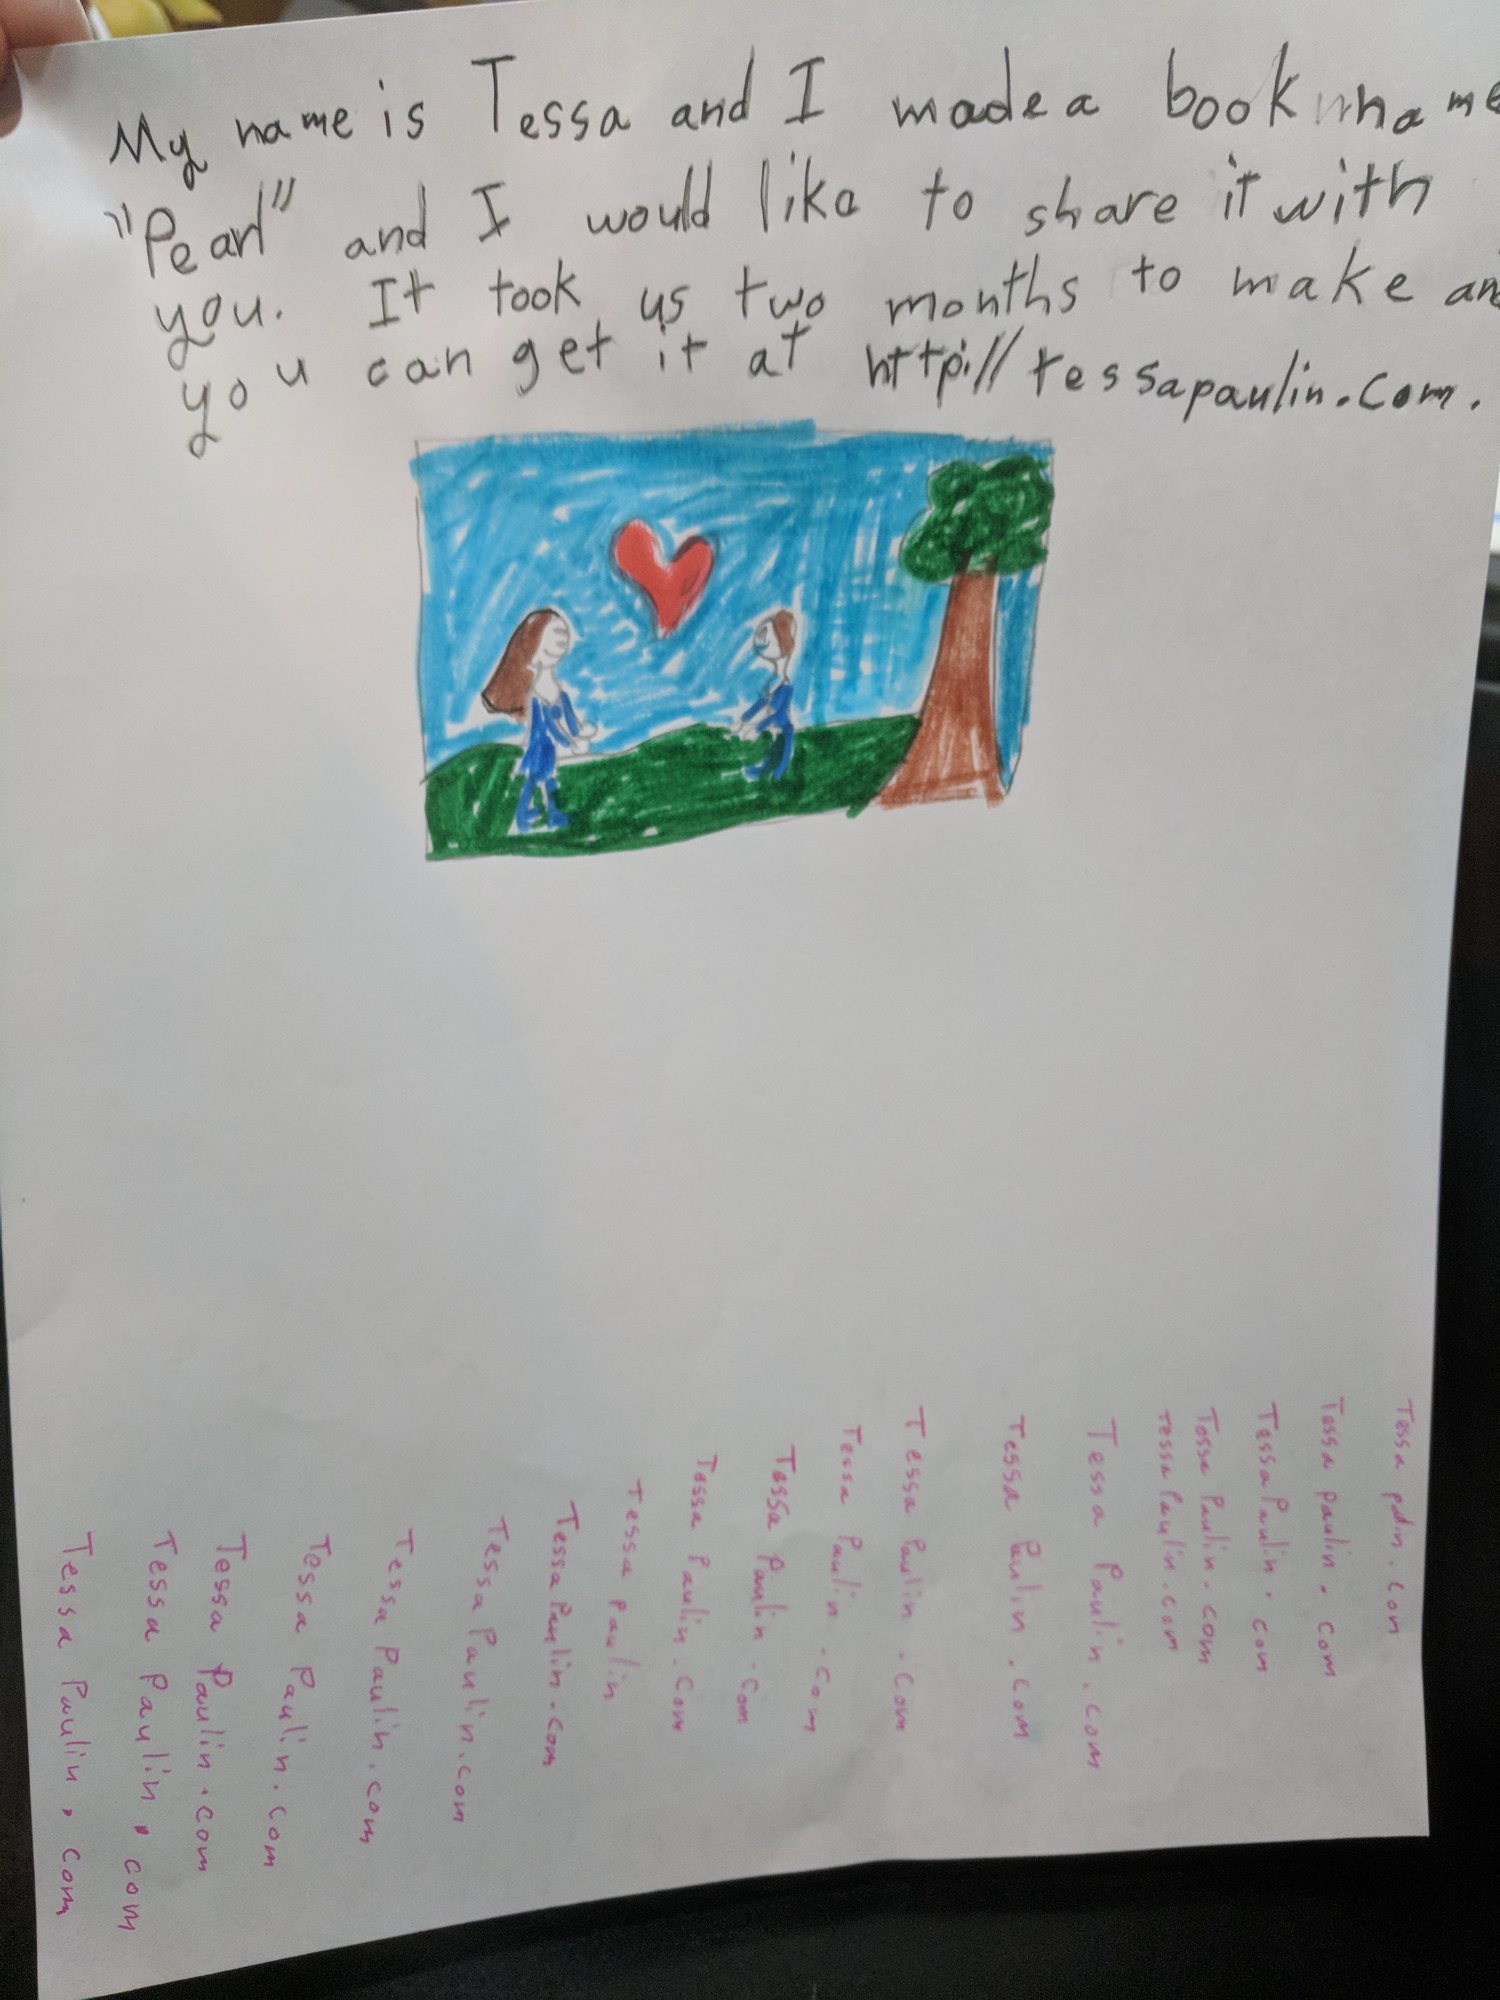 My name is Tessa and I made a book name
"Pearl" and I would like to share it with
you. It took us two months to make an
you can get it at http://tessapaulin.com.
Tessa Paulin.com
Tessa Paulin.com
Tessa Paulin.com
Tessa Paulin.com
Tessa Paulin.com
Tessa Paulin.com
Tessa Paulin.com
Tessa Paulin
Tessa Paulin.com
Tessa Paulin.com
Tessa Paulin.com
Tessa Paulin.com
Tessa Paulin.com
Tessa Paulin.com
Tessa Paulin.com
Tessa Paulin.com
Tessa Paulin.com
Tessa paulin.com
Tessa .com